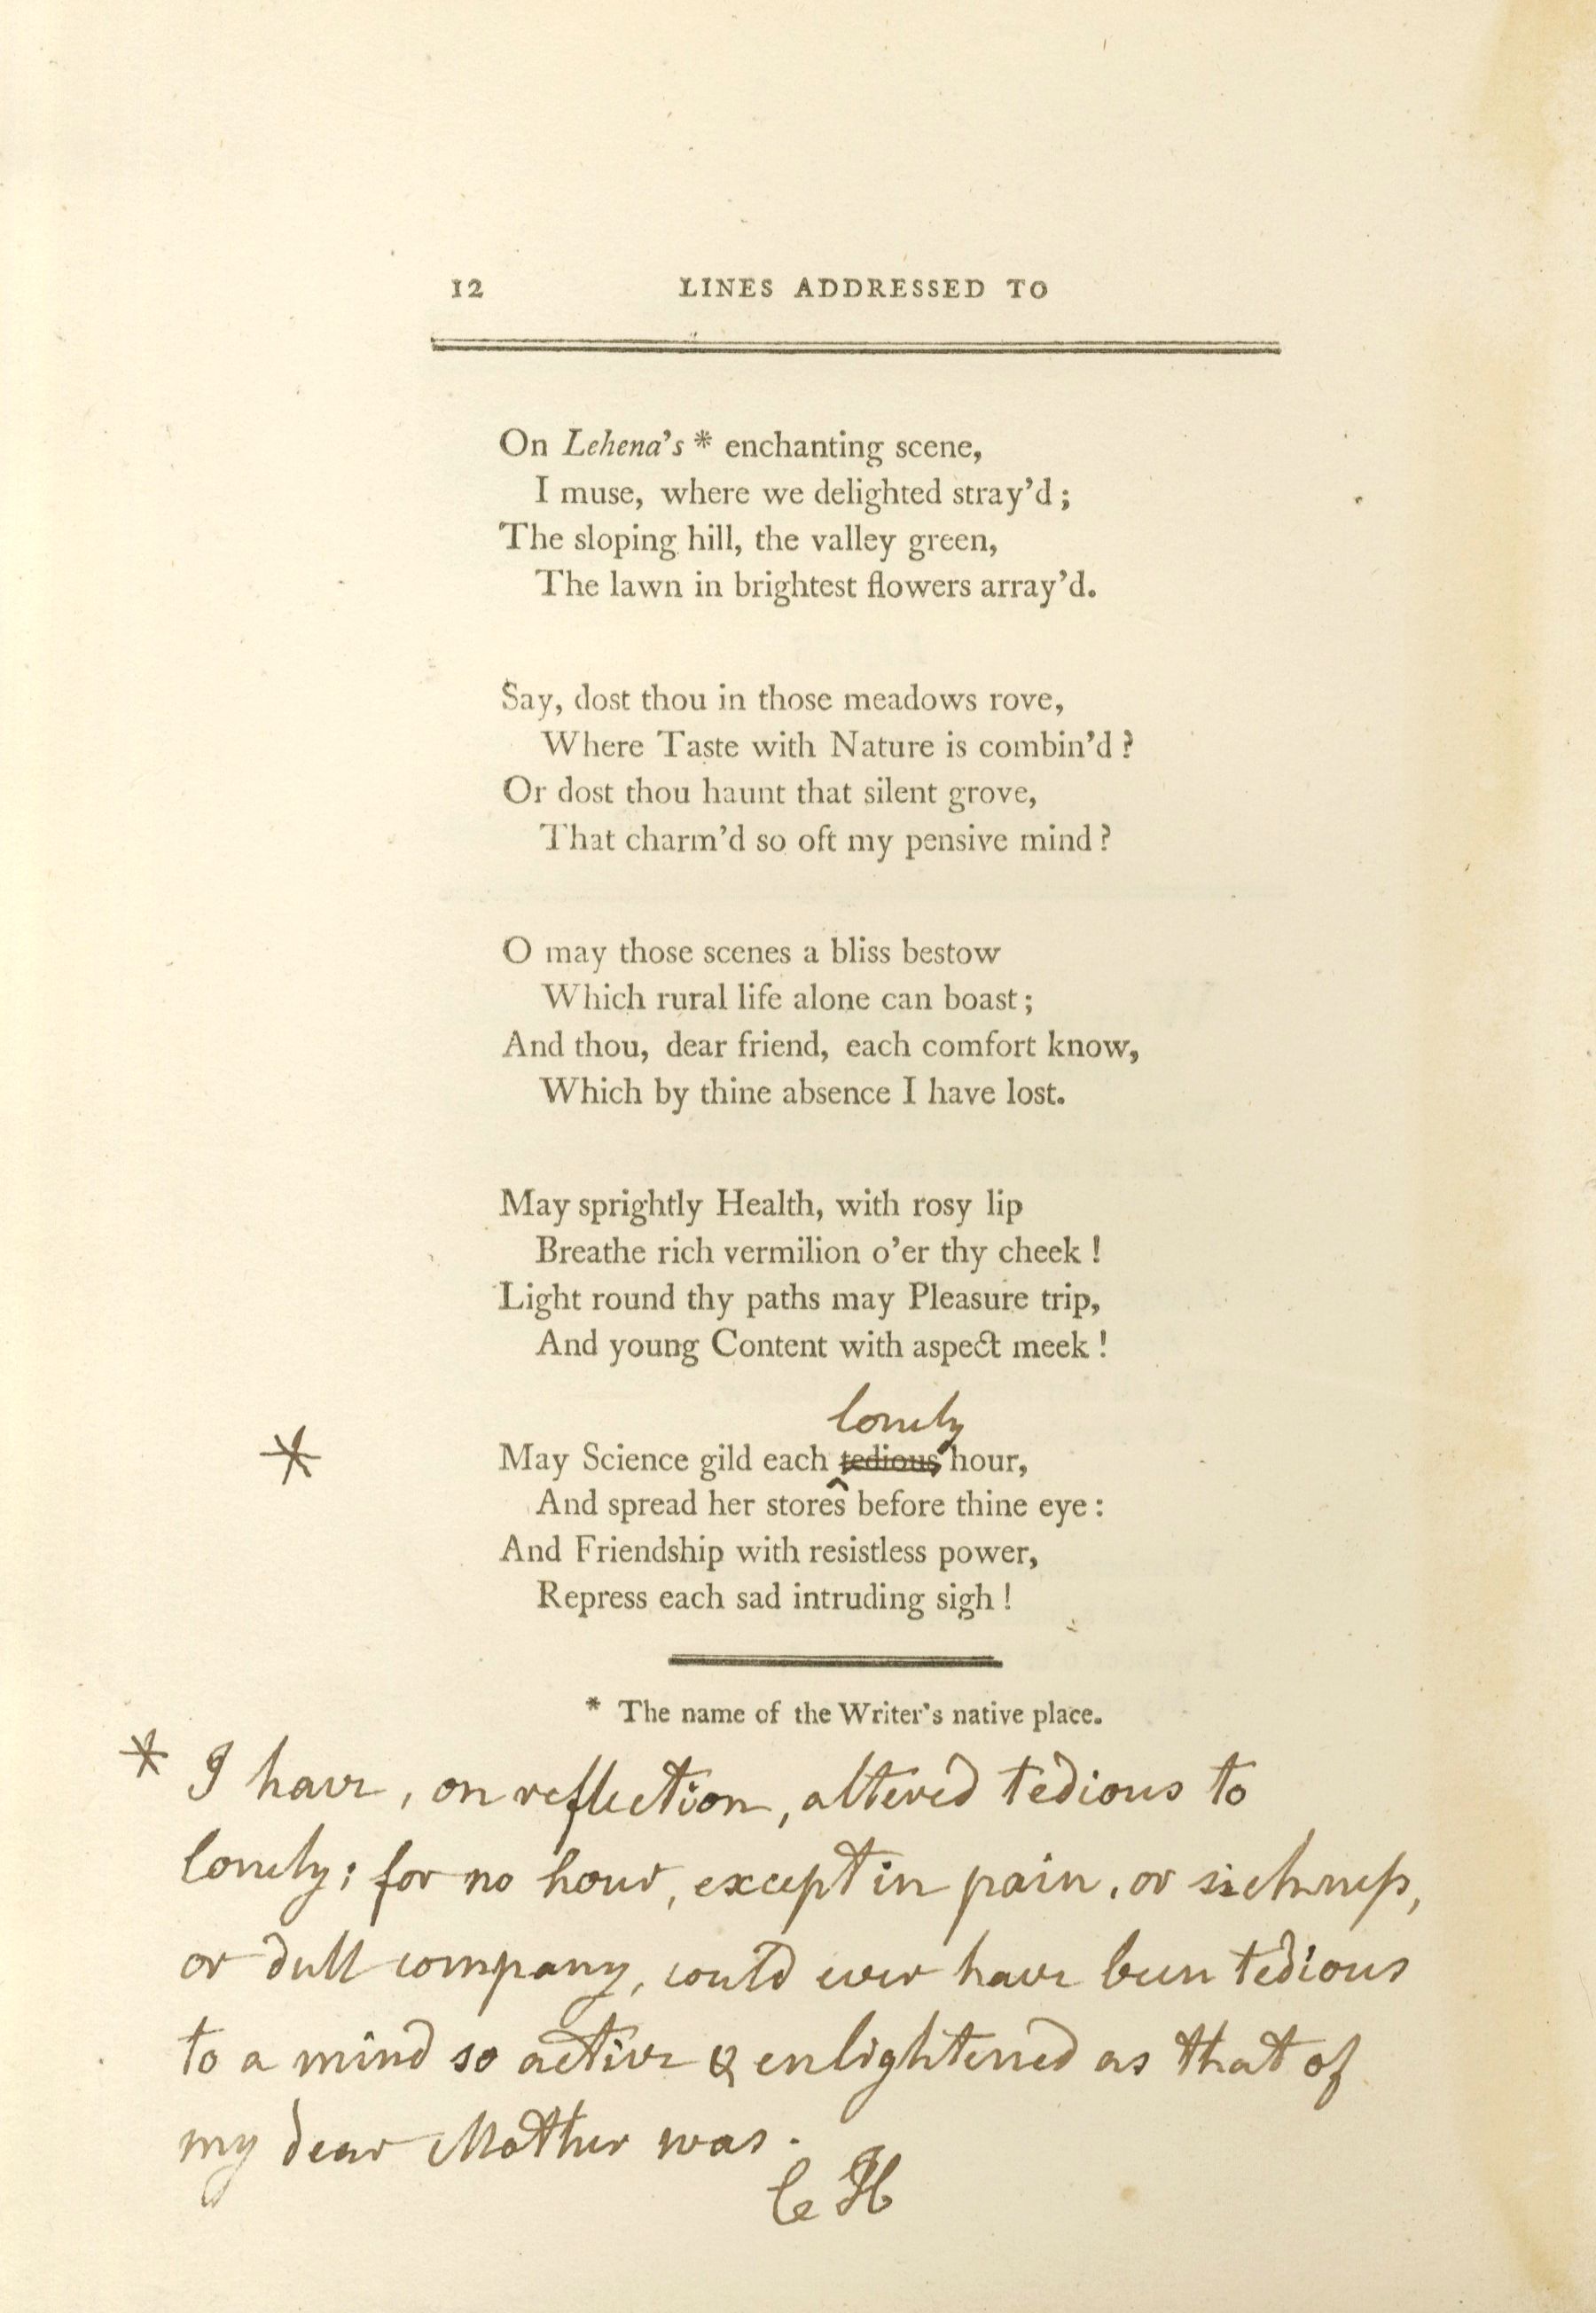 12 LINES ADDRESSED TO
On Lehena's * enchanting scene,
I muse, where we delighted stray'd ;
The sloping hill, the valley green,
The lawn in brightest flowers array'd.
Say, dost thou in those meadows rove,
Where Taste with Nature is combin'd ?
Or dost thou haunt that silent grove,
That charm'd so oft my pensive mind ?
O may those scenes a bliss bestow
Which rural life alone can boast ;
And thou, dear friend, each comfort know,
Which by thine absence I have lost.
May sprightly Health, with rosy lip
Breathe rich vermilion o'er thy cheek !
Light round thy paths may Pleasure trip,
And young Content with aspect meek !
lonely
* May Science gild each tedious hour,
And spread her stores before thine eye :
And Friendship with resistless power,
Repress each sad intruding sigh !
* The name of the Writer's native place.
* I have, on reflection, altered tedious to
lonely; for no hour, except in pain, or sickness,
or dull company, could ever have been tedious
to a mind so active & enlightened as that of
my dear Mother was.
C H